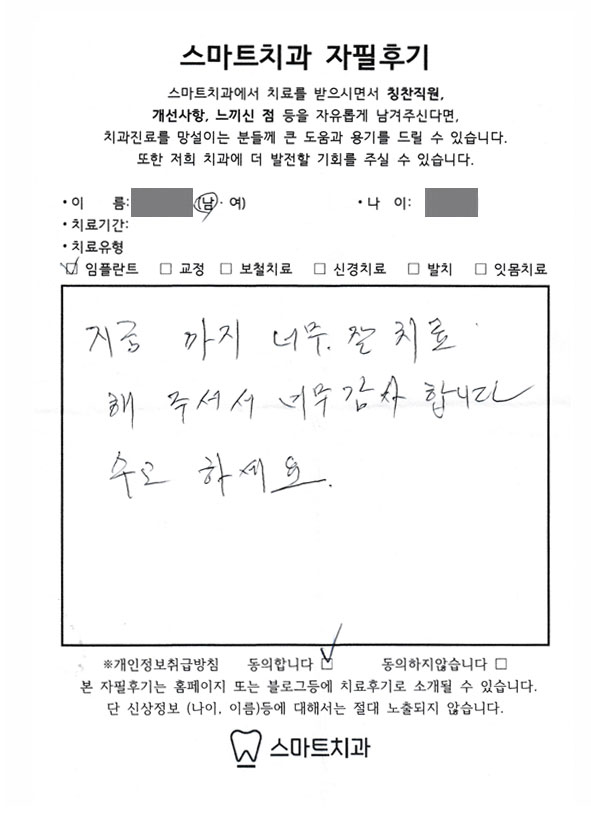 스마트치과 자필후기
스마트치과에서 치료를 받으시면서 칭찬직원,
개선사항, 느끼신 점 등을 자유롭게 남겨주신다면,
치과진료를 망설이는 분들께 큰 도움과 용기를 드릴 수 있습니다.
또한 저희 치과에 더 발전할 기회를 주실 수 있습니다.
• 이 름: (남 · 여) • 나 이:
• 치료기간:
• 치료유형
☑ 임플란트 □ 교정 □ 보철치료 □ 신경치료 □ 발치 □ 잇몸치료
지금 까지 너무. 잘 치료
해 주셔서 너무 감사 합니다
수고 하세요.
※개인정보취급방침 동의합니다 ☑ 동의하지않습니다 □
본 자필후기는 홈페이지 또는 블로그등에 치료후기로 소개될 수 있습니다.
단 신상정보 (나이, 이름)등에 대해서는 절대 노출되지 않습니다.
스마트치과